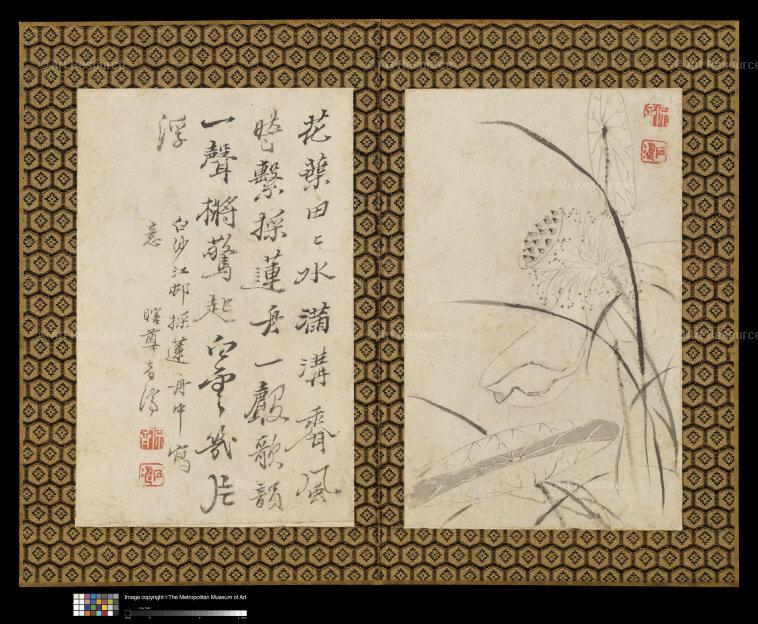 花葉田〻水滿溝香風
繫採蓮舟一歌韻
一聲槳驚起白雲幾片
浮
白沙江邨採蓮舟中寫
意
瞎尊者濟
Image copyright©The Metropolitan Museum of Art
Art Resource